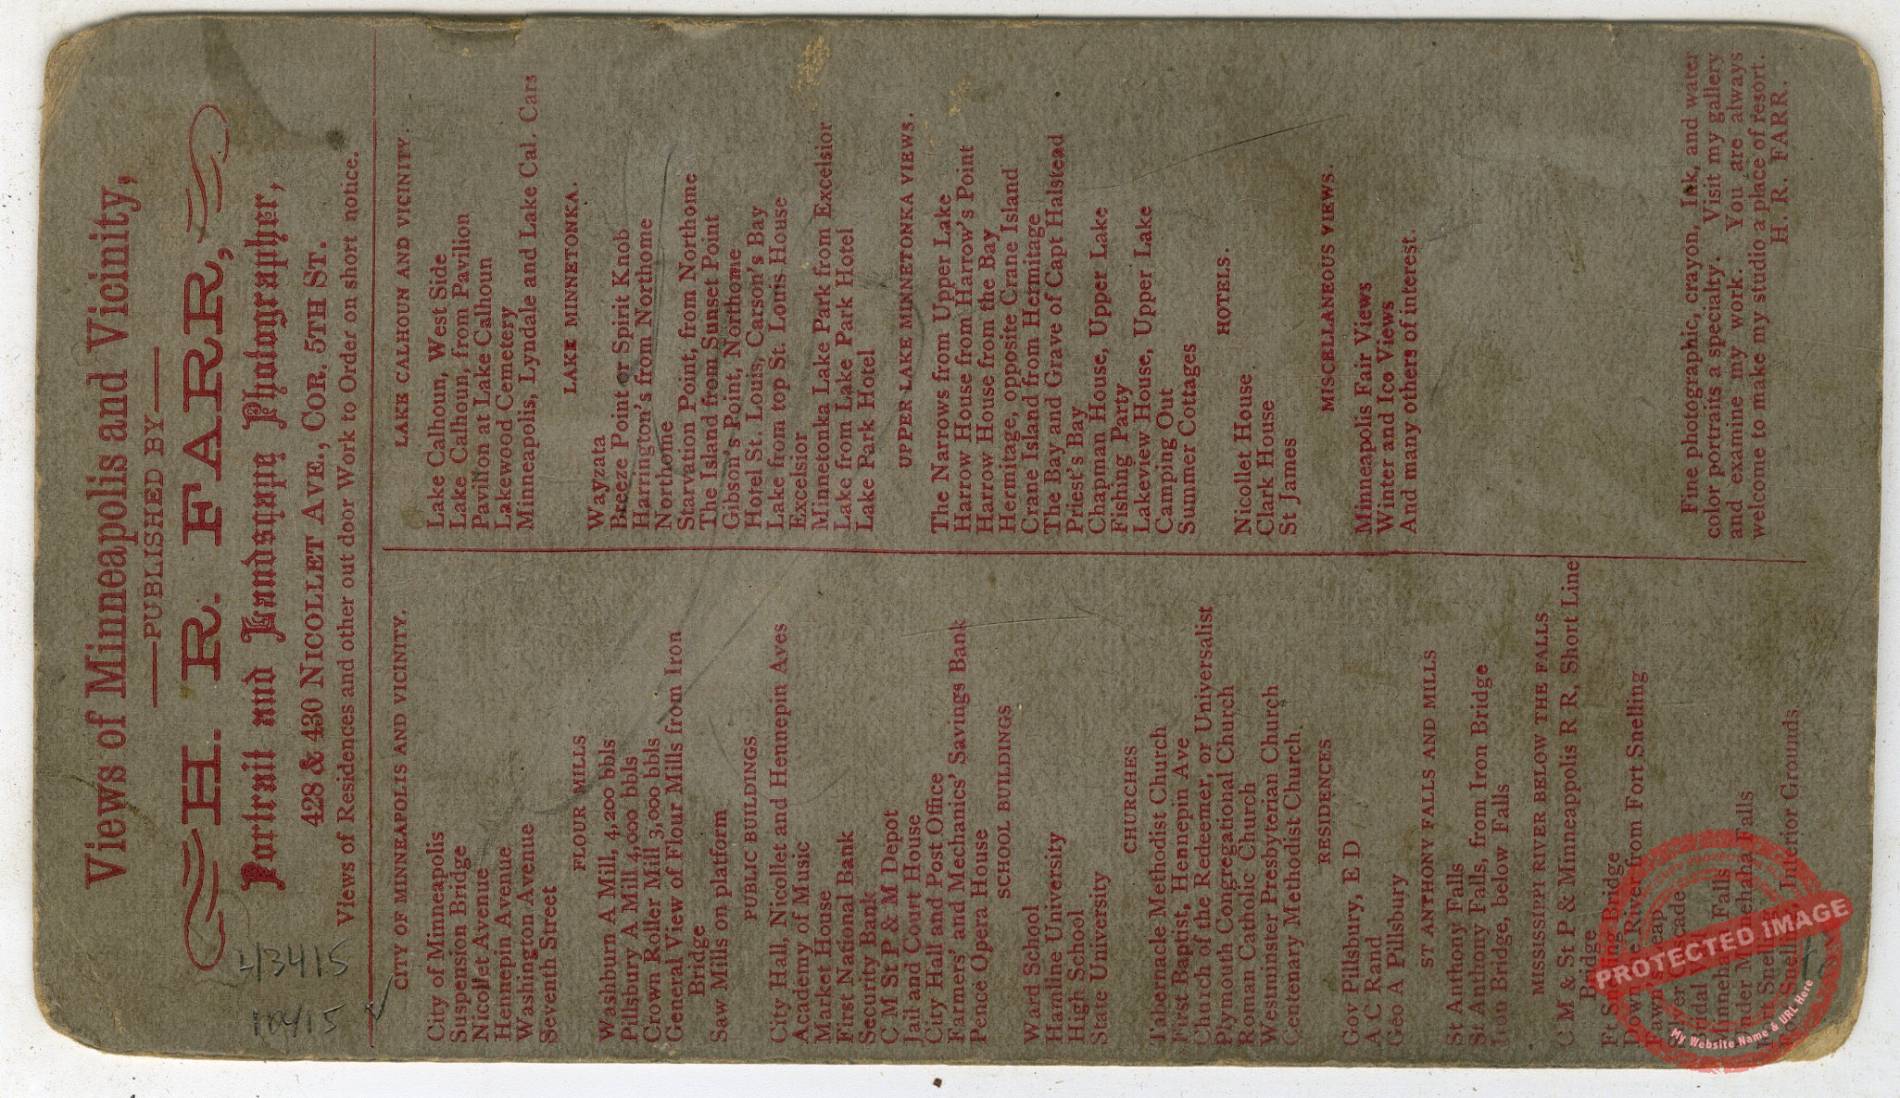 Views of Minneapolis and Vicinity,
—PUBLISHED BY—
H. R. FARR,
Portrait and Landscape Photographer,
428 & 430 NICOLLET AVE., COR. 5TH ST.
Views of Residences and other out door Work to Order on short notice.
CITY OF MINNEAPOLIS AND VICINITY.
City of Minneapolis
Suspension Bridge
Nicollet Avenue
Hennepin Avenue
Washington Avenue
Seventh Street
FLOUR MILLS
Washburn A Mill, 4,200 bbls
Pillsbury A Mill 4,000 bbls
Crown Roller Mill 3,000 bbls
General View of Flour Mills from Iron
Bridge
Saw Mills on platform
PUBLIC BUILDINGS
City Hall, Nicollet and Hennepin Aves
Academy of Music
Market House
First National Bank
Security Bank
C M St P & M Depot
Jail and Court House
City Hall and Post Office
Farmers' and Mechanics' Savings Bank
Pence Opera House
SCHOOL BUILDINGS
Ward School
Hamline University
High School
State University
CHURCHES
Tabernacle Methodist Church
First Baptist, Hennepin Ave
Church of the Redeemer, or Universalist
Plymouth Congregational Church
Roman Catholic Church
Westminster Presbyterian Church
Centenary Methodist Church.
RESIDENCES
Gov Pillsbury, E D
A C Rand
Geo A Pillsbury
ST ANTHONY FALLS AND MILLS
St Anthony Falls
St Anthony Falls, from Iron Bridge
Iron Bridge, below Falls
MISSISSIPPI RIVER BELOW THE FALLS
C M & St P & Minneappolis R R, Short Line
Bridge
Ft Snelling Bridge
Down the River from Fort Snelling
Fawn Leap
Bridal
Minnehaha Falls
Under Minnehaha Falls
Fort Snelling
Fort Snelling, Interior Grounds
LAKE CALHOUN AND VICINITY.
Lake Calhoun, West Side
Lake Calhoun, from Pavilion
Pavilion at Lake Calhoun
Lakewood Cemetery
Minneapolis, Lyndale and Lake Cal. Cars
LAKE MINNETONKA.
Wayzata
Breeze Point or Spirit Knob
Harrington's from Northome
Northome
Starvation Point, from Northome
The Island from Sunset Point
Gibson's Point, Northome
Hotel St. Louis, Carson's Bay
Lake from top St. Louis House
Excelsior
Minnetonka Lake Park from Excelsior
Lake from Lake Park Hotel
Lake Park Hotel
UPPER LAKE MINNETONKA VIEWS.
The Narrows from Upper Lake
Harrow House from Harrow's Point
Harrow House from the Bay
Hermitage, opposite Crane Island
Crane Island from Hermitage
The Bay and Grave of Capt Halstead
Priest's Bay
Chapman House, Upper Lake
Fishing Party
Lakeview House, Upper Lake
Camping Out
Summer Cottages
HOTELS.
Nicollet House
Clark House
St James
MISCELLANEOUS VIEWS.
Minneapolis Fair Views
Winter and Ice Views
And many others of interest.
Fine photographic, crayon, Ink, and water
color portraits a specialty. Visit my gallery
and examine my work. You are always
welcome to make my studio a place of resort.
H. R. FARR.
PROTECTED IMAGE
My Website Name & URL Here